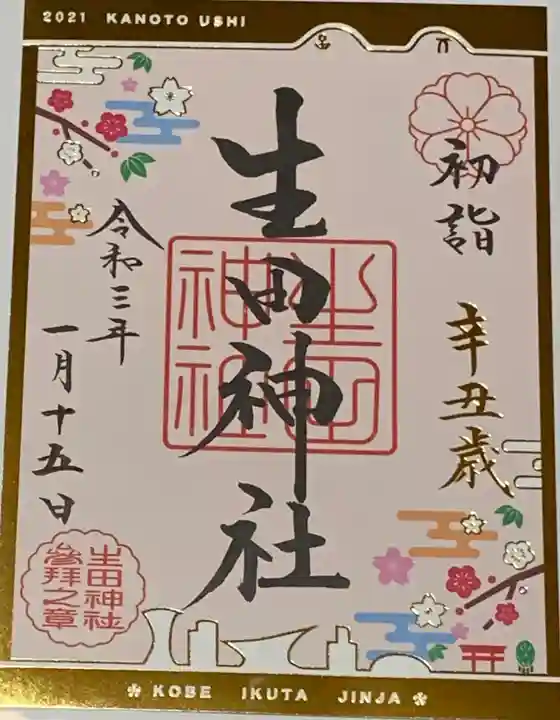 2021 KANOTO USHI
初詣 辛丑歳
生田神社
生田神社
令和三年
一月十五日
生田神社
參拜之章
KOBE IKUTA JINJA